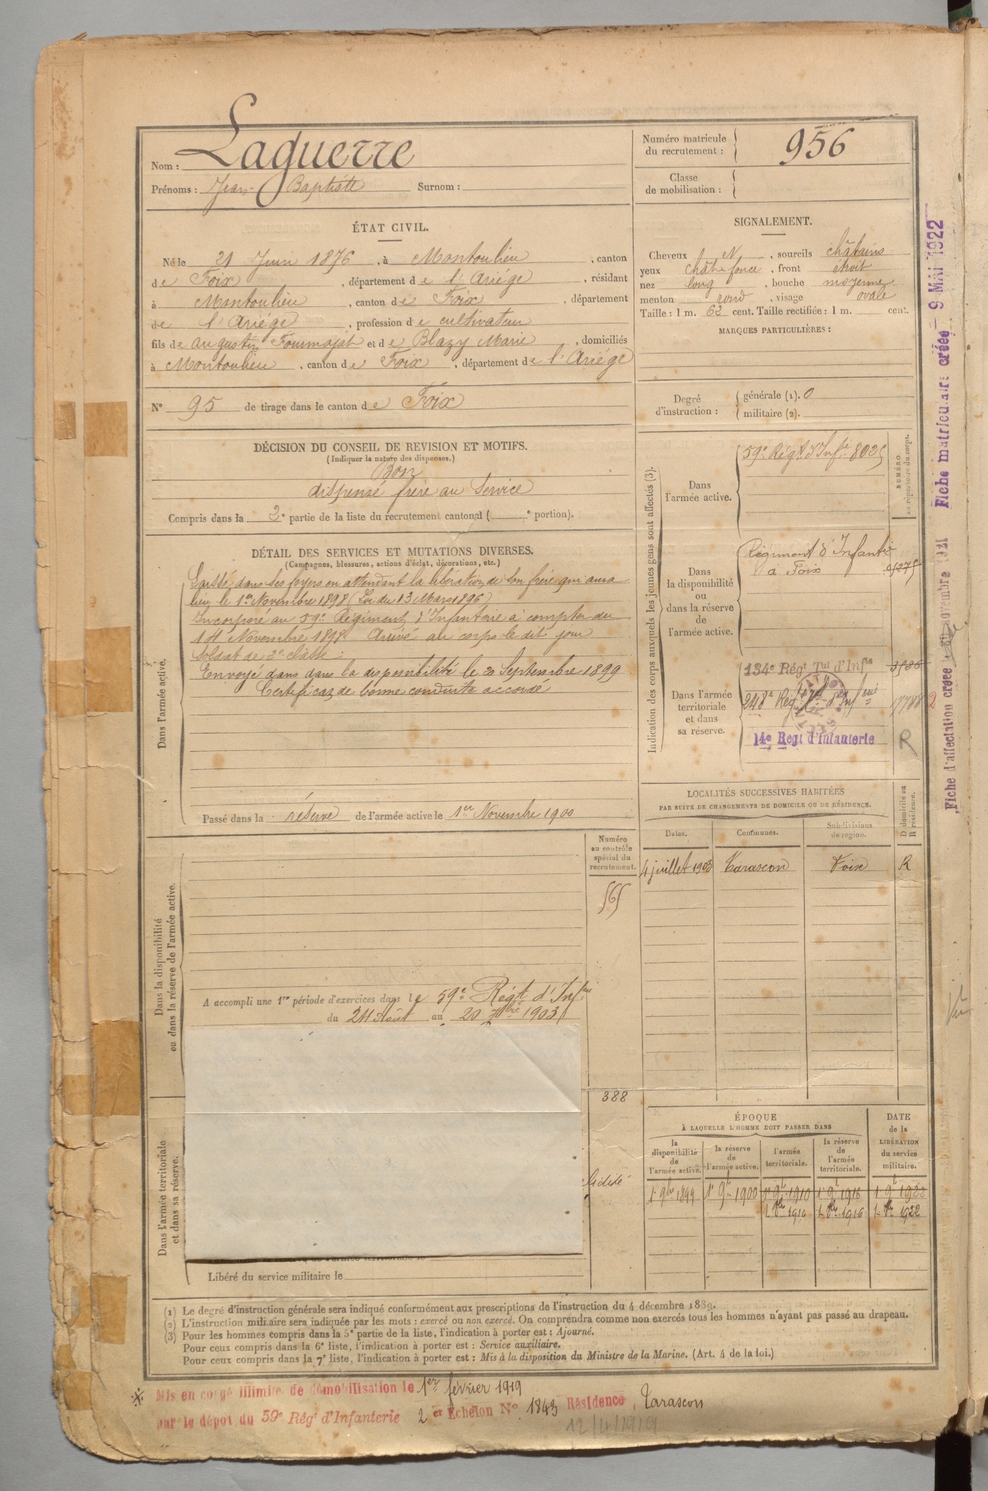 Nom : Laguerre
Prénoms : Jean Baptiste Surnom :
Numéro matricule du recrutement : 956
Classe de mobilisation :
ÉTAT CIVIL.
Né le 21 Juin 1876, à Montoulieu, canton
de Foix, département de l'Ariège, résidant
à Montoulieu, canton de Foix, département
de l'Ariège, profession de cultivateur
fils de Augustin et de Blazy Marie, domiciliés
à Montoulieu, canton de Foix, département de l'Ariège
N° 95 de tirage dans le canton de Foix
SIGNALEMENT.
Cheveux N, sourcils châtains
yeux chât. foncé, front étroit
nez long, bouche moyenne
menton rond, visage ovale
Taille : 1 m. 62 cent. Taille rectifiée : 1 m. cent.
MARQUES PARTICULIÈRES :
Degré d'instruction : générale (1). 0
militaire (2).
DÉCISION DU CONSEIL DE REVISION ET MOTIFS.
(Indiquer la nature des dispenses.)
Bon
dispensé frère au Service
Compris dans la 2e partie de la liste du recrutement cantonal ( e portion).
DÉTAIL DES SERVICES ET MUTATIONS DIVERSES.
(Campagnes, blessures, actions d'éclat, décorations, etc.)
Dans l'armée active.
Laissé dans ses foyers en attendant la libération de son frère qui aura
lieu le 1er Novembre 1898 (Loi du 13 Mars 1896)
Incorporé au 59e Régiment d'Infanterie à compter du
14 Novembre 1898 Arrivé au corps le dit jour
Soldat de 2e classe :
Envoyé dans dans la disponibilité le 20 Septembre 1899
Certificat de bonne conduite accordé
Passé dans la réserve de l'armée active le 1er Novembre 1900
Indication des corps auxquels les jeunes gens sont affectés (3).
NUMÉRO
Dans l'armée active.
59e Régt d'Infie
Dans la disponibilité ou dans la réserve de l'armée active.
Régiment d'Infantie
à Foix
Dans l'armée territoriale et dans sa réserve.
134e Régt Tal d'Infie
14e Régt d'Infanterie
R
LOCALITÉS SUCCESSIVES HABITÉES
PAR SUITE DE CHANGEMENTS DE DOMICILE OU DE RÉSIDENCE.
Dates. Communes. Subdivisions de région. D domicile ou R résidence.
4 juillet 1903 Tarascon Foix R
Dans la disponibilité ou dans la réserve de l'armée active.
Numéro au contrôle spécial du recrutement.
A accompli une 1re période d'exercices dans le 59e Régt d'Infie
du 24 Août au 20 7bre 1903
388
Dans l'armée territoriale et dans sa réserve.
Libéré du service militaire le
ÉPOQUE
À LAQUELLE L'HOMME DOIT PASSER DANS
DATE de la LIBÉRATION du service militaire.
la disponibilité de l'armée active. la réserve de l'armée active. l'armée territoriale. la réserve de l'armée territoriale.
1er 9bre 1899 1er 9bre 1900 1er 9bre 1910 1er 9bre 1916 1er 9bre 1922
(1) Le degré d'instruction générale sera indiqué conformément aux prescriptions de l'instruction du 4 décembre 1889.
(2) L'instruction militaire sera indiquée par les mots : exercé ou non exercé. On comprendra comme non exercés tous les hommes n'ayant pas passé au drapeau.
(3) Pour les hommes compris dans la 5e partie de la liste, l'indication à porter est : Ajourné.
Pour ceux compris dans la 6e liste, l'indication à porter est : Service auxiliaire.
Pour ceux compris dans la 7e liste, l'indication à porter est : Mis à la disposition du Ministre de la Marine. (Art. 4 de la loi.)
Mis en congé illimité de démobilisation le 1er février 1919
par le dépôt du 59e Régt d'Infanterie 2 er Echelon N° 1843 Résidence, Tarascon
12/4/1919
Fiche d'affectation créée novembre 1921 Fiche matriculaire créée 9 MAI 1922